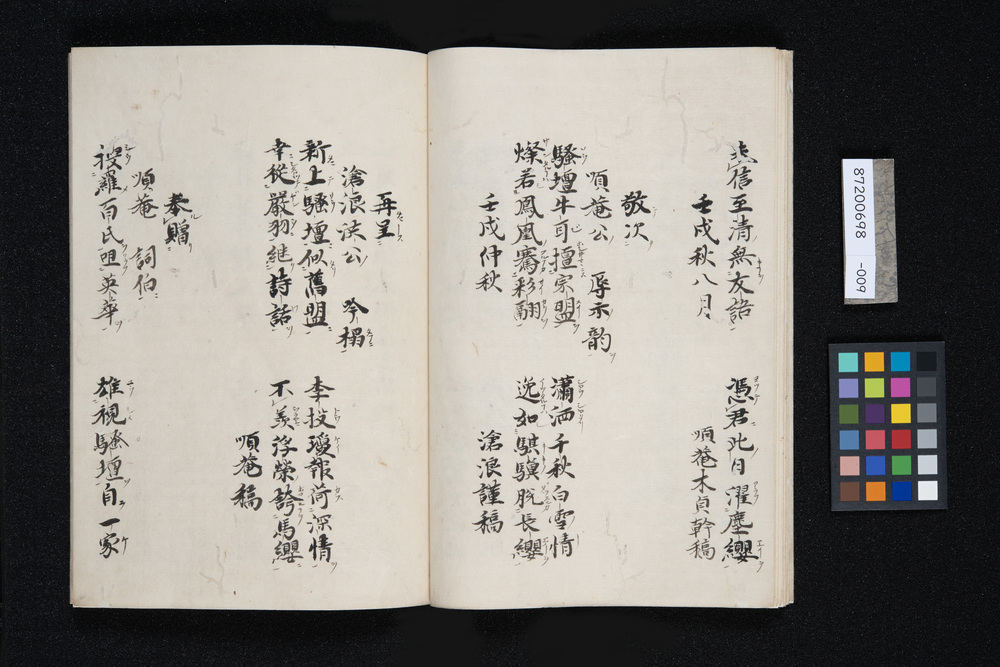 忠信至清無友語 憑君此日濯塵纓
壬戌秋八月 順菴木貞幹稿
敬次
順菴公 辱示韵
騷壇牛耳擅宗盟 瀟洒千秋白雪情
燦若鳳凰騫彩翮 逸如騏驥脫長纓
壬戌仲秋 滄浪謹稿
再呈
滄浪洪公 吟榻
新上騷壇似舊盟 李投瓊報荷深情
幸從嚴羽継詩話 不羨浮榮誇馬纓
順菴稿
奉贈
順菴 詞伯
羅百氏咀英華 雄視騷壇自一家
87200698
-009